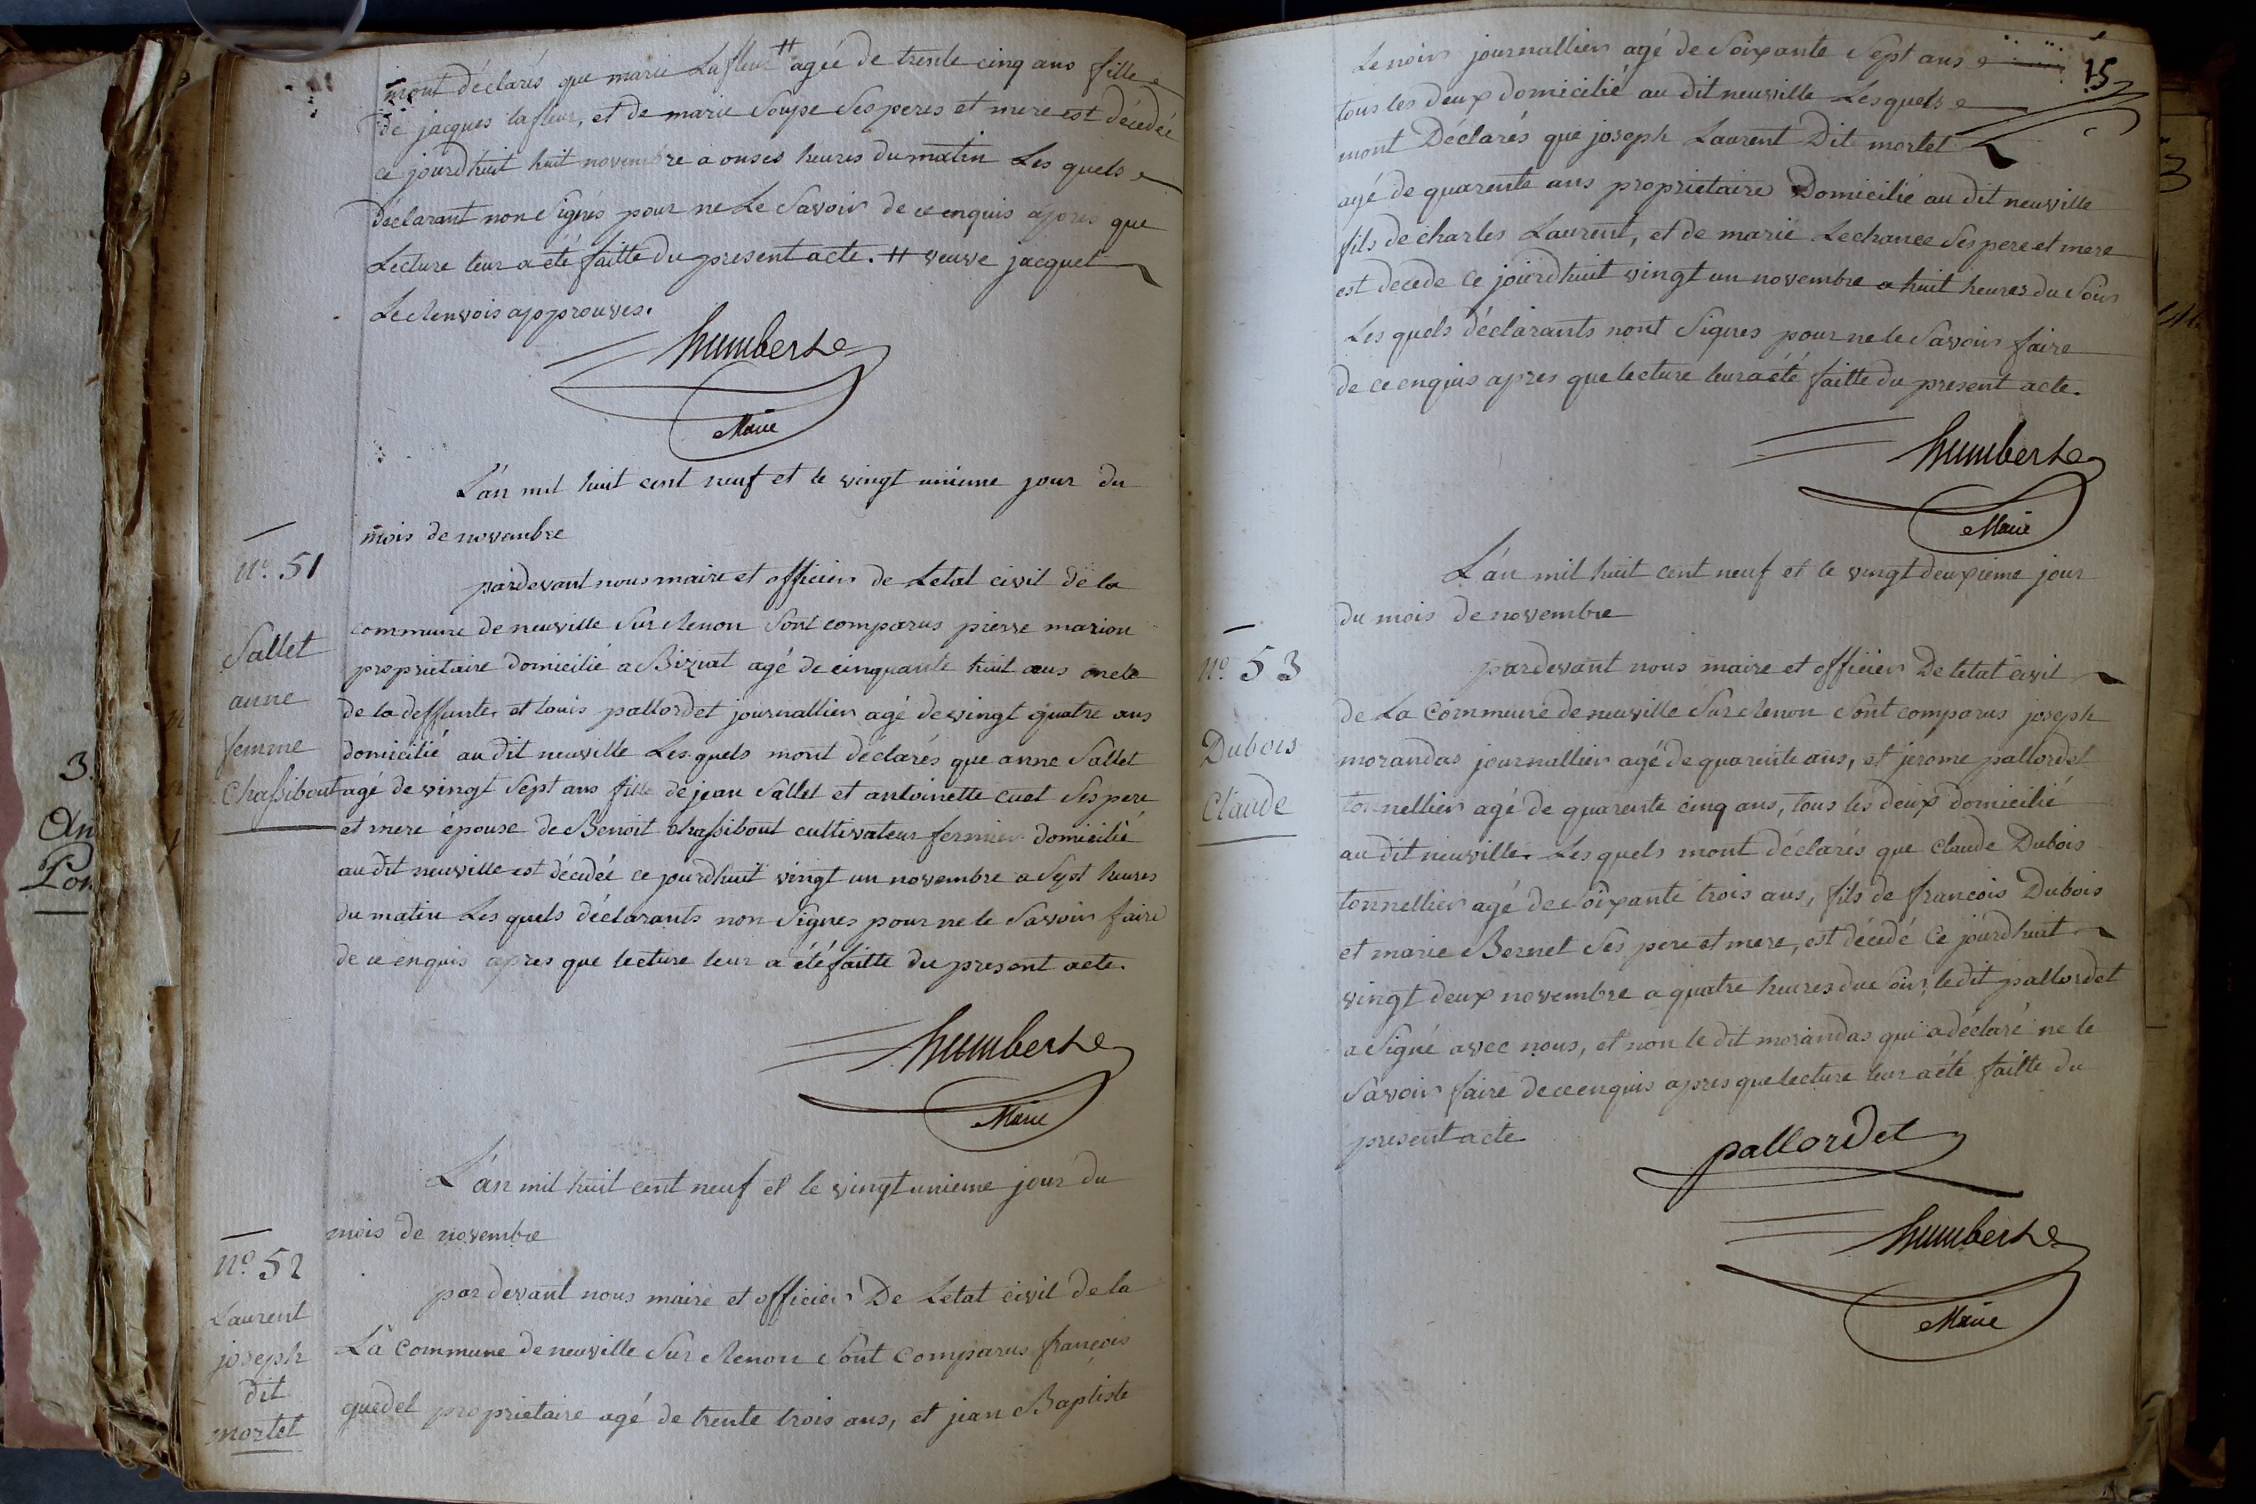 mont déclarés que marie Lafleur # agée de trente cinq ans fille
de jacques lafleur, et de marie Soupe Ses peres et mere est décédée
ce jourdhuit huit novembre a onses heures du matin Les quels
déclarant non Signés pour ne Le Savoir de ce enquis apres que
Lecture leur a été faitte du present acte. # veuve jacquet
Le Renvois approuves.
humbert
Maire
L'an mil huit cent neuf et le vingt unieme jour du
mois de novembre
n.º 51
Sallet
anne
femme
Chassibout
pardevant nous maire et officier de Letat civil de la
commune de neuville Sur Renon Sont comparus pierre marion
proprietaire domicilié a Biziat agé de cinquante huit ans oncle
de la deffunte et louis pallordet journallier agé de vingt quatre ans
domicilié au dit neuville Les quels mont déclarés que anne Sallet
agé de vingt Sept ans fille de jean Sallet et antoinette cuet Ses pere
et mere épouse de Benoit Chassibout cultivateur fermier domicilié
au dit neuville est décédée ce jourdhuit vingt un novembre a Sept heures
du matin Les quels déclarants non Signes pour ne le Savoir faire
de ce enquis apres que lecture leur a été faitte du present acte.
humbert
Maire
L'an mil huit cent neuf et le vingt unieme jour du
mois de novembre
nº 52
Laurent
joseph
dit
mortet
par devant nous maire et officier De Letat civil de la
La Commune de neuville Sur Renon Sont Comparus françois
quedet proprietaire agé de trente trois ans, et jean Baptiste
15
Lenoir journallier agé de Soixante Sept ans
tous les deux domicilié au dit neuville Les quels
mont Déclarés que joseph Laurent Dit mortet
agé de quarente ans proprietaire Domicilié au dit neuville
fils de charles Laurent, et de marie Lechance Ses pere et mere
est decede ce jourdhuit vingt un novembre a huit heures du Soir
Les quels déclarants nont Signes pour ne le Savoir faire
de ce enquis apres que lecture leur a été faitte du present acte.
humbert
Maire
L'an mil huit cent neuf et le vingt deuxieme jour
du mois de novembre
nº 53
Dubois
Claude
par devant nous maire et officier De letat civil
de La Commune de neuville Sur Renon Sont comparus joseph
morandas journallier agé de quarente ans, et jerome pallordet
tonnellier agé de quarente cinq ans, tous les deux domicilié
au dit neuville. Les quels mont déclarés que Claude Dubois
tonnellier agé de Soixante trois ans, fils de francois Dubois
et marie Bernet Ses pere et mere, est décédé Ce jourdhuit
vingt deux novembre a quatre heures du Soir, le dit pallordet
a Signé avec nous, et non le dit morandas qui a déclaré ne le
Savoir faire de ce enquis apres que lecture leur a été faitte du
present acte
pallordet
humbert
Maire